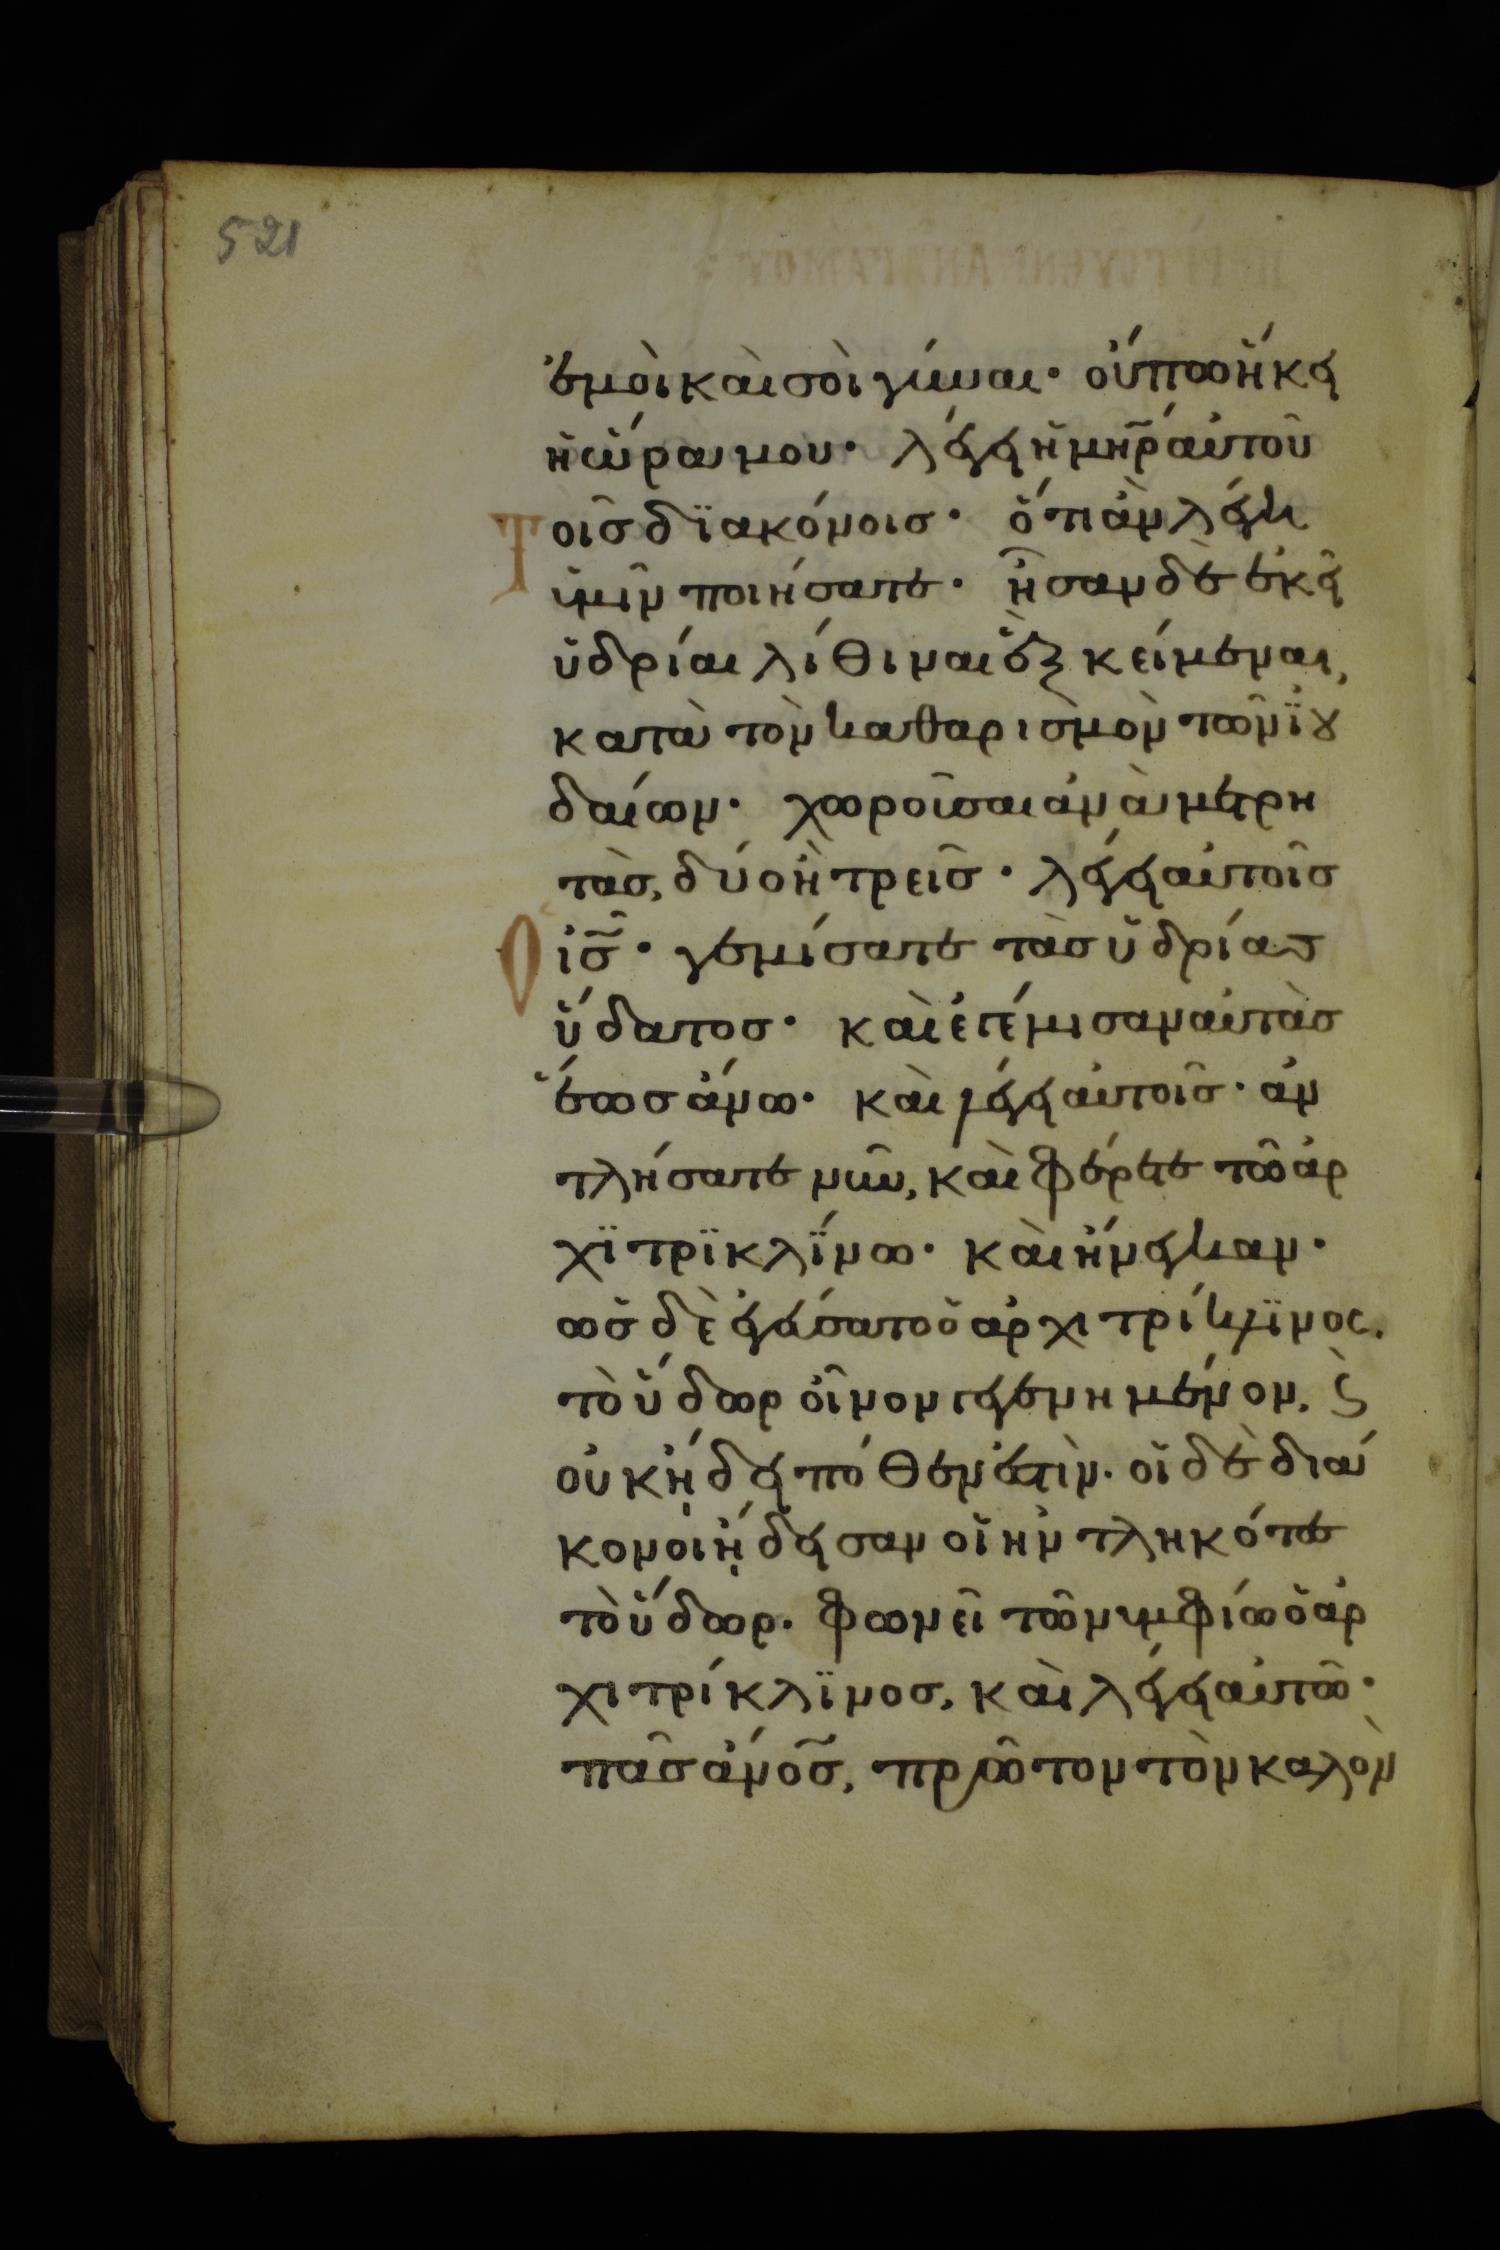 521
ἐμοὶ καὶ σοὶ γύναι· οὔπω ἥκει
ἡ ὥρα μου· λέγει ἡ μηρ̃ αὐτοῦ
τοῖς διακόνοις· ὅτι ἂν λέγη
ὑμῖν ποιήσατε· ἦσαν δὲ ἐκεῖ
ὑδρίαι λίθιναι ἓξ κείμεναι,
κατὰ τὸν καθαρισμὸν τῶν ϊου
δαίων· χωροῦσαι ἀνὰ μετρη
τὰς, δύο ἢ τρεῖς· λέγει αὐτοῖς
ὁ ις̃· γεμίσατε τὰς ὑδρίας
ὕδατος· καὶ ἐγέμισαν αὐτὰς
ἕως ἄνω· καὶ λέγει αὐτοῖς· ἀν
τλήσατε νῦν, καὶ φέρετε τῶ ἀρ
χϊτρϊκλΐνω· καὶ ἤνεγκαν·
ὡς δὲ ἐγεύσατο ὁ ἀρχιτρίκλϊνος,
τὸ ὕδωρ οἶνον γεγενημένον, ϛ̀
οὐκ ἤδει πόθεν ἐστὶν· οἱ δὲ διά
κονοι ἤδεισαν οἱ ἠντληκότες
τὸ ὕδωρ· φωνεῖ τῶ νυμφίω ὁ ἀρ
χιτρίκλϊνος, καὶ λέγει αὐτῶ·
πᾶς ἄνος̃, πρῶτον τὸν καλὸν